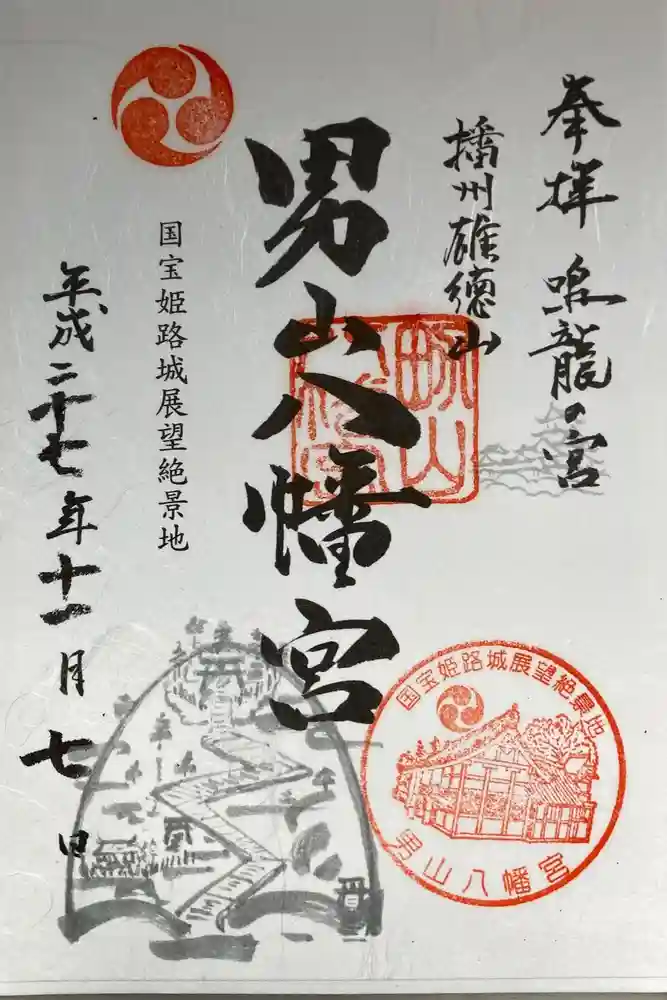 奉拝 鳴龍の宮
播州雄徳山
男山八幡宮
国宝姫路城展望絶景地
平成二十七年十一月七日
国宝姫路城展望絶景地
男山八幡宮